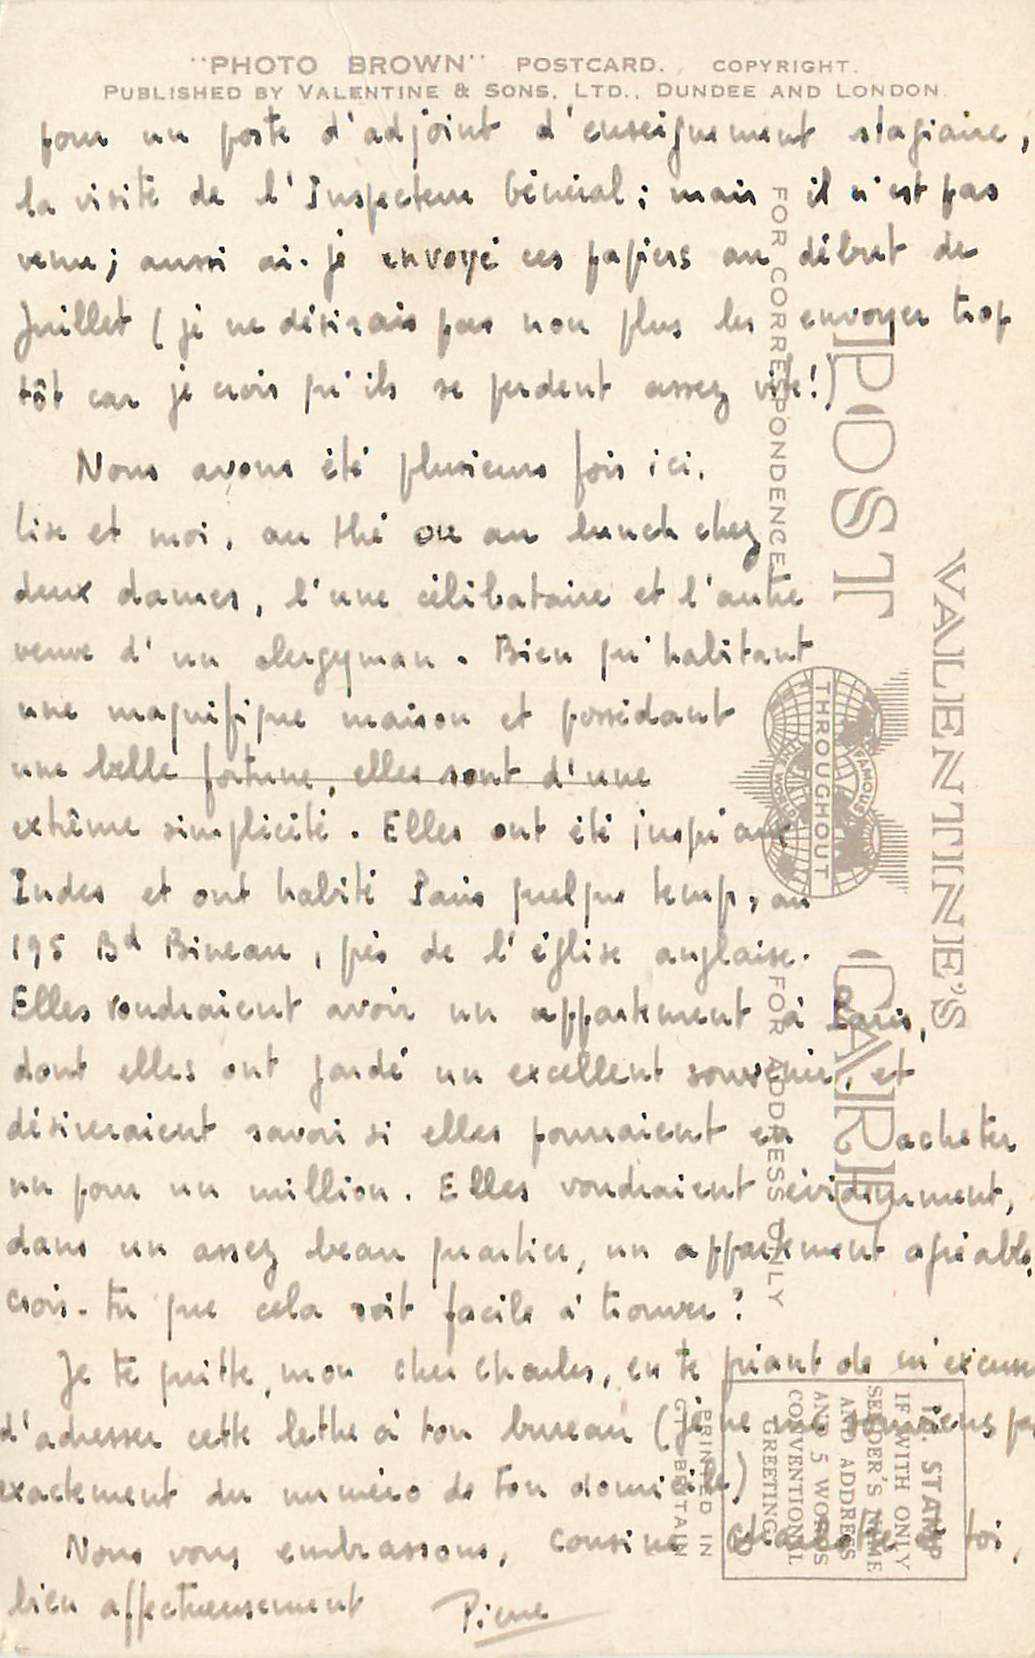 "PHOTO BROWN" POSTCARD. COPYRIGHT.
PUBLISHED BY VALENTINE & SONS, LTD., DUNDEE AND LONDON.
pour un poste d'adjoint d'enseignement stagiaire,
la visite de l'Inspecteur Général ; mais il n'est pas
venu ; aussi ai-je envoyé ces papiers au début de
Juillet (je ne désirais pas non plus les envoyer trop
tôt car je crois qu'ils se perdent assez vite !)
Nous avons été plusieurs fois ici,
Lise et moi, au thé ou au lunch chez
deux dames, l'une célibataire et l'autre
veuve d'un clergyman. Bien qu'habitant
une magnifique maison et possédant
une belle fortune, elles sont d'une
extrême simplicité. Elles ont été jusqu'aux
Indes et ont habité Paris quelque temps, au
195 Bd Bineau, près de l'église anglaise.
Elles voudraient avoir un appartement à Paris,
dont elles ont gardé un excellent souvenir, et
désireraient savoir si elles pourraient en acheter
un pour un million. Elles voudraient évidemment,
dans un assez beau quartier, un appartement agréable,
crois-tu que cela soit facile à trouver ?
Je te quitte, mon cher Charles, en te priant de m'excuser
d'adresser cette lettre à ton bureau (je ne me souviens pas
exactement du numéro de ton domicile)
Nous vous embrassons, cousine et toi,
bien affectueusement Pierre
VALENTINE'S
POST CARD
FOR CORRESPONDENCE
FOR ADDRESS ONLY
FAMOUS
THROUGHOUT
THE WORLD
PRINTED IN
GT BRITAIN
STAMP
IF WITH ONLY
SENDER'S NAME
AND ADDRESS
AND 5 WORDS
CONVENTIONAL
GREETING